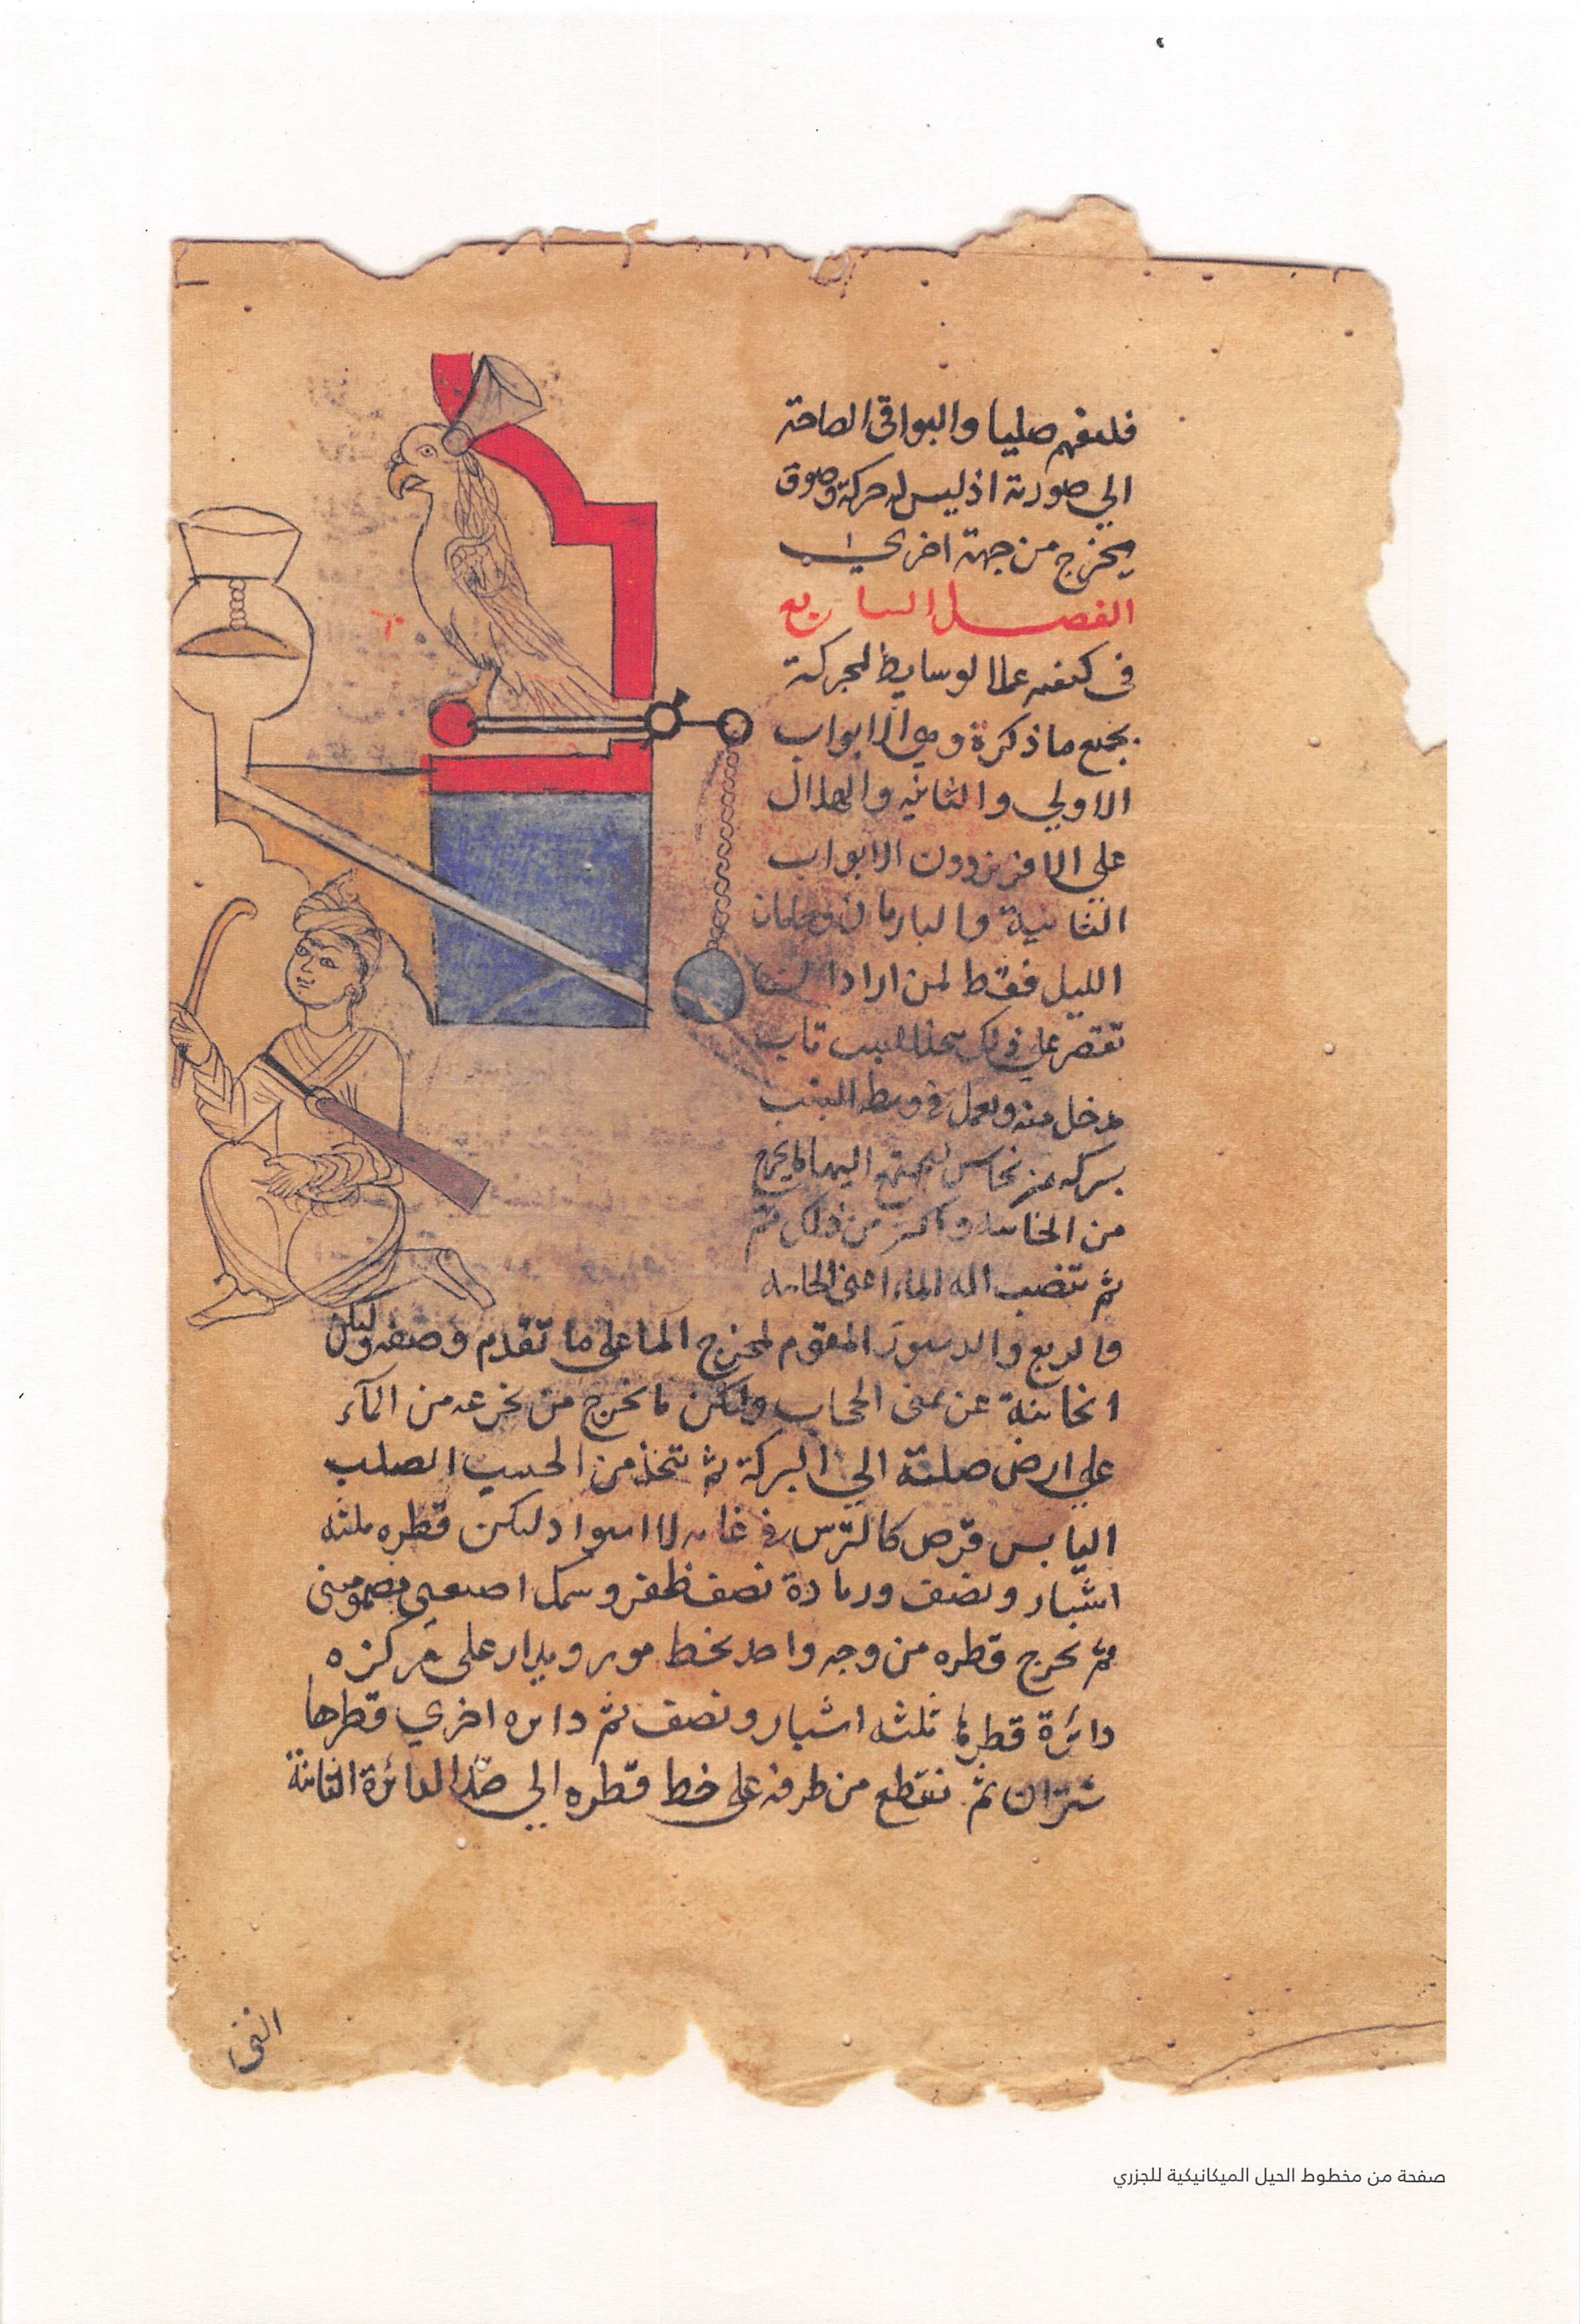 فليفهم صليا والبواقي الصاحة
الي صورته اذ ليس له حركة وصوة
يخرج من جهة اخري
الفصل السابع
في كيفيه عمل الوسايط المحركة
بجميع ما ذكرة وهي الابواب
الاولي والثانيه والهلال
علي الافريز دون الابواب
الثانية والبازيان
الليل فقط لمن اراد
تقتصر علي ذلك باب
مدخل منه ويعمل في وسط البيت
بركه من نحاس ليجتمع اليها ما يخرج
من الخانيه واكثر من ذلك ثم
ثم تنصب اله الماء اعني الخانيه
والربع والدستور المقوم لمخرج الما علي ما تقدم وصفه وليكن
الخانية عن يمنى الحجاب وليكن ما يخرج من مخرجه من المآء
علي ارض صلبة الي البركة ثم تتخذ من الخشب الصلب
اليابس قرص كالترس في غايه الاستوا وليكن قطره ثلثه
اشبار ونصف وزيادة نصف ظفر وسمك اصبعين مضمومتين
ثم يخرج قطره من وجه واحد بخط موثر ويدار علي مركزه
دائرة قطرها ثلثه اشبار ونصف ثم دايره اخري قطرها
شبران ثم تقطع من طرفه علي خط قطره الي حد الدائرة الثانية
صفحة من مخطوط الحيل الميكانيكية للجزري